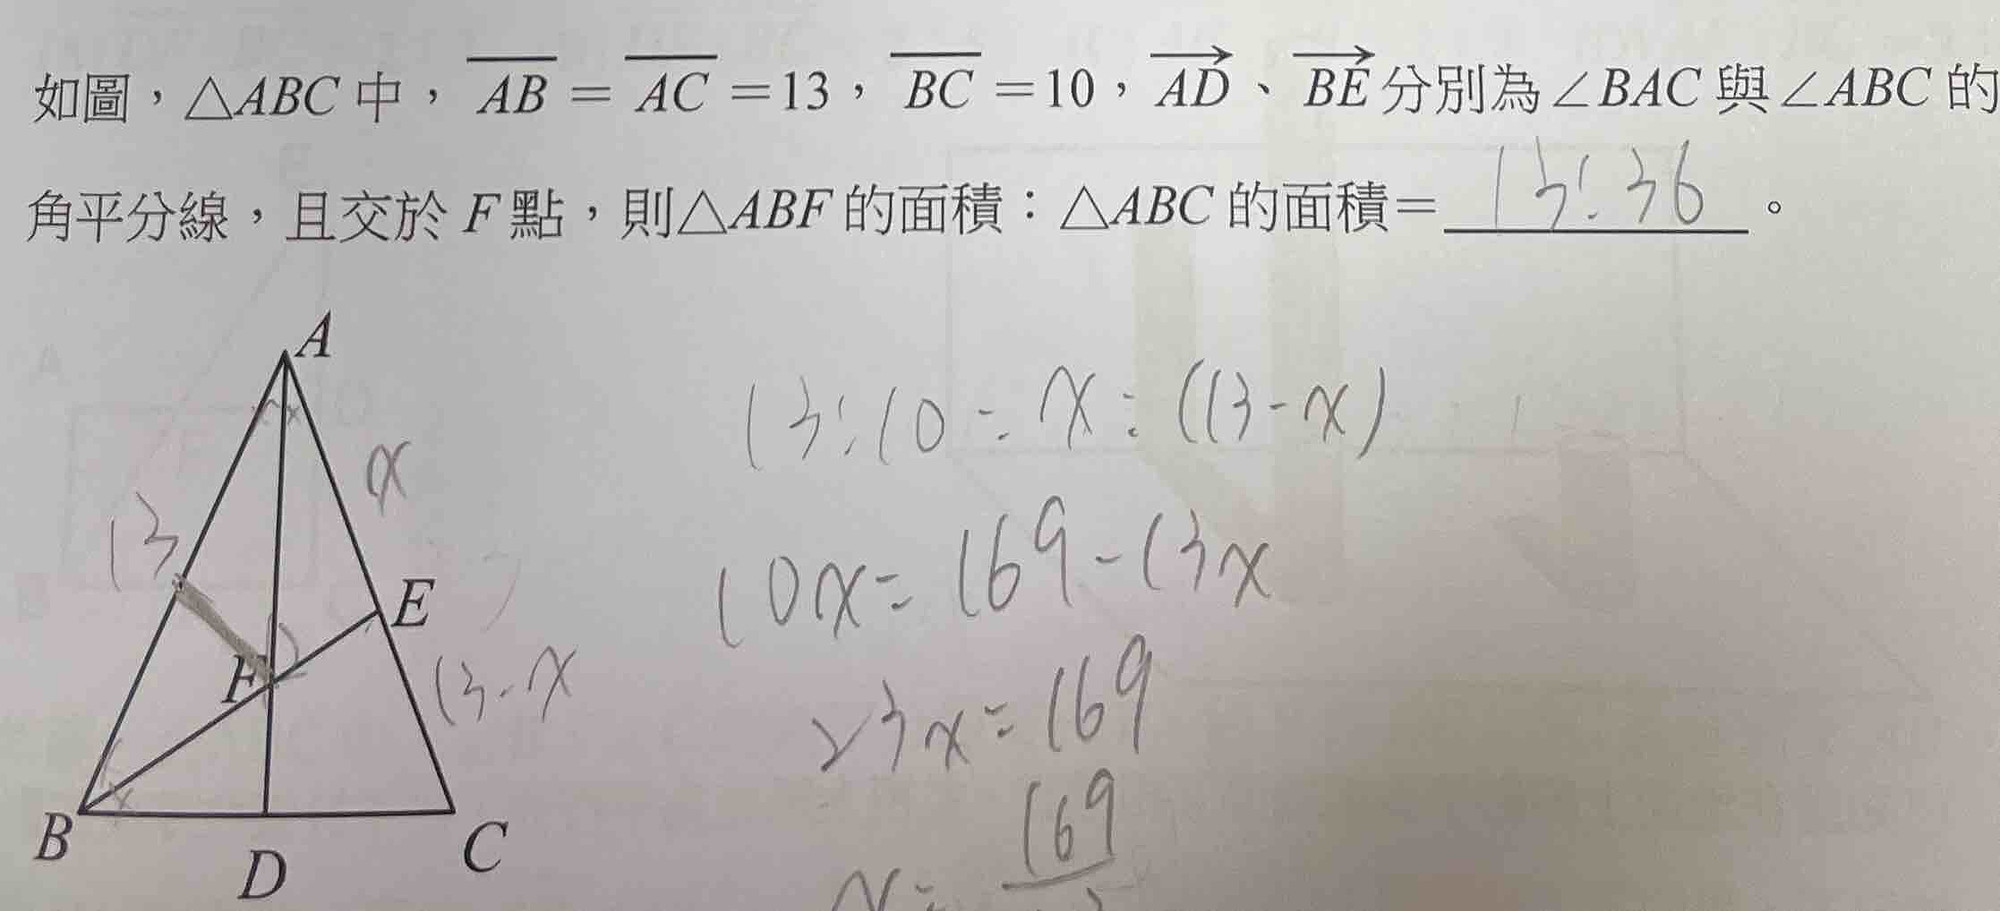 如圖，△ABC 中，AB = AC =13，BC =10，AD、BE 分別為∠BAC 與∠ABC 的
角平分線，且交於 F 點，則△ABF 的面積：△ABC 的面積= 13:36 。
A
13:10=x:(13-x)
x
13
10x=169-13x
E
F
13-x
23x=169
B
C
D
x= 169